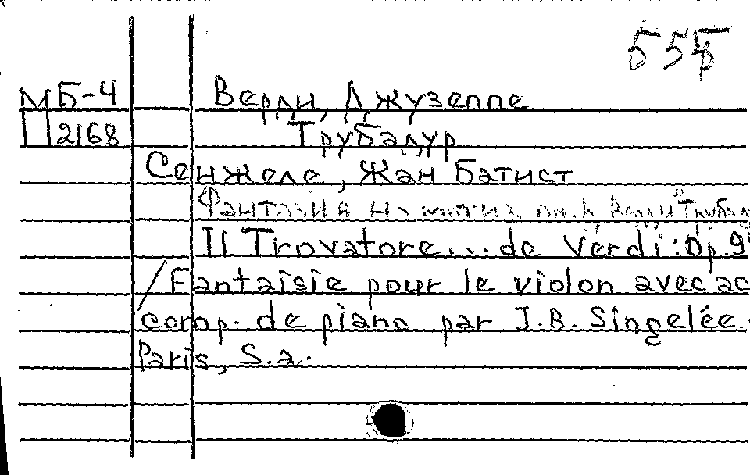 555
МБ-4 Верди, Джузеппе
П 2168 Трубадур
Сенжеле, Жан Батист
Фантазия на мотив оп. Верди "Трубад
Il Trovatore... de Verdi: Op. 9
/Fantaisie pour le violon avec ac
comp. de piano par J.B. Singelée.
Paris, S.a.